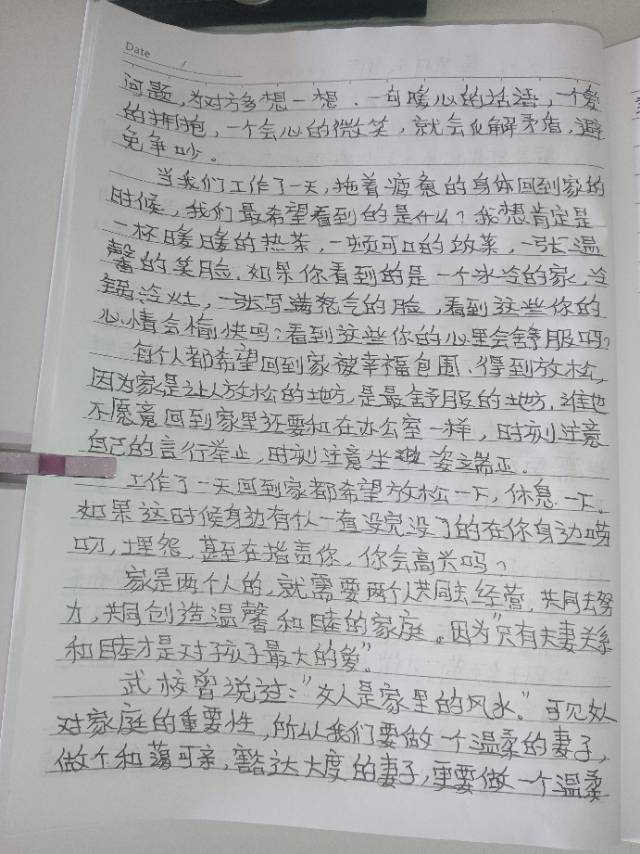 Date /
问题,为对方多想一想.一句暖心的话语,一个爱
的拥抱,一个会心的微笑,就会化解矛盾,避
免争吵。
当我们工作了一天,拖着疲惫的身体回到家的
时候,我们最希望看到的是什么?我想肯定是
一杯暖暖的热茶,一顿可口的饭菜,一张温
馨的笑脸.如果你看到的是一个冰冷的家,冷
锅冷灶,一张写满怒气的脸,看到这些你的
心情会愉快吗?看到这些你的心里会舒服吗?
每个人都希望回到家被幸福包围、得到放松,
因为家是让人放松的地方,是最舒服的地方.谁也
不愿意回到家里还要和在办公室一样,时刻注意
自己的言行举止,时刻注意坐姿端正.
工作了一天回到家都希望放松一下,休息一下。
如果这时候身边有个人一直没完没了的在你身边唠
叨,埋怨,甚至在指责你,你会高兴吗?
家是两个人的,就需要两个人共同去经营,共同去努
力,共同创造温馨和睦的家庭。因为"只有夫妻关系
和睦才是对孩子最大的爱"。
武校曾说过:"女人是家里的风水."可见女人
对家庭的重要性,所以我们要做一个温柔的妻子,
做个和蔼可亲,豁达大度的妻子,更要做一个温柔